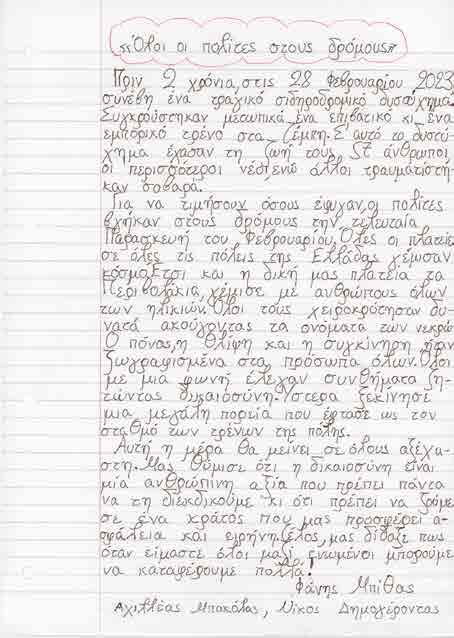 «Όλοι οι πολίτες στους δρόμους»
Πριν 2 χρόνια, στις 28 Φεβρουαρίου 2023,
συνέβη ένα τραγικό σιδηροδρομικό δυστύχημα.
Συγκρούστηκαν μετωπικά ένα επιβατικό κι ένα
εμπορικό τρένο στα Τέμπη. Σ' αυτό το δυστύ-
χημα έχασαν τη ζωή τους 57 άνθρωποι
οι περισσότεροι νέοι, ενώ άλλοι τραυματίστη-
καν σοβαρά.
Για να τιμήσουν όσους έφυγαν, οι πολίτες
βγήκαν στους δρόμους την τελευταία
Παρασκευή του Φεβρουαρίου. Όλες οι πλατείες
σε όλες τις πόλεις της Ελλάδας γέμισαν
κόσμο. Έτσι και η δική μας πλατεία τα
Περιβολάκια, γέμισε με ανθρώπους όλων
των ηλικιών. Όλοι τους χειροκρότησαν δυ-
νατά ακούγοντας τα ονόματα των νεκρών
Ο πόνος, η θλίψη και η συγκίνηση ήταν
ζωγραφισμένα στα πρόσωπα όλων. Όλοι
με μια φωνή έλεγαν συνθήματα ζη-
τώντας δικαιοσύνη. Ύστερα ξεκίνησε
μια μεγάλη πορεία που έφτασε ως τον
σταθμό των τρένων της πόλης.
Αυτή η μέρα θα μείνει σε όλους αξέχα-
στη. Μας θύμισε ότι η δικαιοσύνη είναι
μία ανθρώπινη αξία που πρέπει πάντα
να τη διεκδικούμε κι ότι πρέπει να ζούμε
σε ένα κράτος που μας προσφέρει α-
σφάλεια και ειρήνη. Τέλος, μας δίδαξε πως
όταν είμαστε όλοι μαζί ενωμένοι μπορούμε
να καταφέρουμε πολλά!
Φάνης Μπίθας
Αχιλλέας Μπακόλας, Νίκος Δημογέροντας